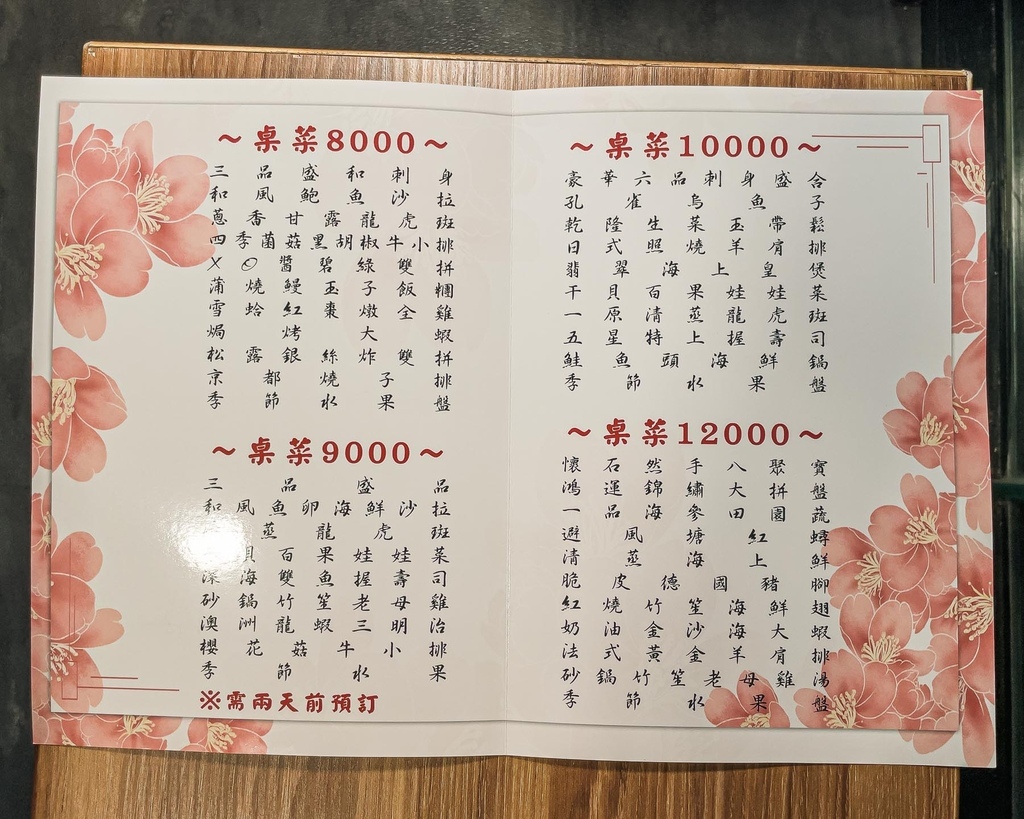 ~桌菜8000~
三品盛和刺身
和風鮑魚沙拉
蔥香甘露龍虎斑
四季菌菇黑胡椒牛小排
XO醬碧綠雙拼
蒲燒鰻玉子飯糰
雪蛤紅棗燉全雞
焗烤大蝦
松露銀絲炸雙拼
京都燒子排
季節水果盤
~桌菜9000~
三品盛品
和風魚卵海鮮沙拉
蒸龍虎斑
貝百果娃娃菜
深海雙魚握壽司
砂鍋竹笙老母雞
澳洲龍蝦三明治
櫻花菇牛小排
季節水果
※需兩天前預訂
~桌菜10000~
豪華六品刺身盛合
孔雀烏魚子
乾隆生菜玉帶鬆
日式照燒羊肩排
翡翠海上皇煲
干貝百果娃娃菜
一原清蒸龍虎斑
五星特上握壽司
鮭魚頭海鮮鍋
季節水果盤
~桌菜12000~
懷石然手八聚寶
鴻運錦繡大拼盤
一品海參田園蔬
避風塘紅蟳
清蒸海上鮮
脆皮德國豬腳
紅燒竹笙海鮮翅
奶油金沙海大蝦
法式黃金羊肩排
砂鍋竹笙老母雞湯
季節水果盤